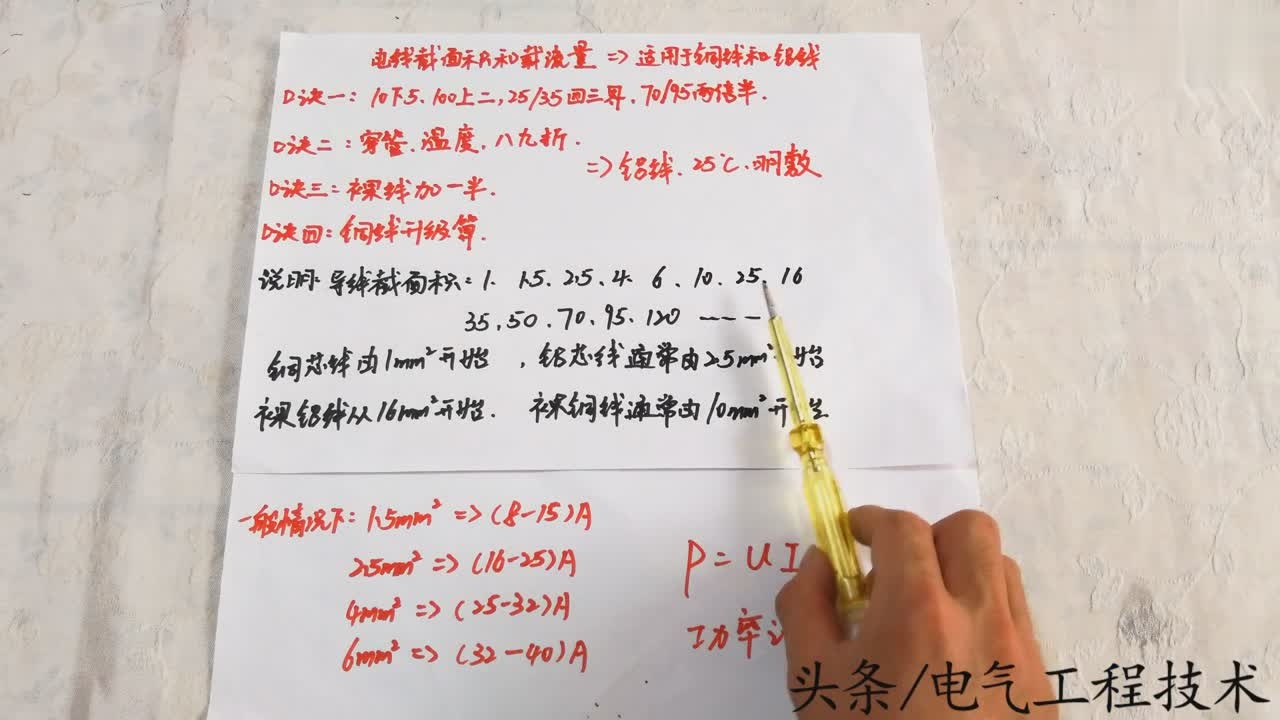 电线截面积和载流量 => 适用于铜线和铝线
口诀一：10下5、100上二，25/35四三界，70/95两倍半.
口诀二：穿管、温度、八九折.
=> 铝线、25℃、明敷
口诀三：裸线加一半.
口诀四：铜线升级算.
说明：导线截面积：1、1.5、2.5、4、6、10、25、16
35、50、70、95、120 ----
铜芯线由1mm²开始，铝芯线通常由2.5mm²开始
裸铝线从16mm²开始. 裸铜线通常由10mm²开始
一般情况下：1.5mm² => (8-15)A
2.5mm² => (16-25)A
4mm² => (25-32)A
6mm² => (32-40)A
P=UI
功率
头条/电气工程技术